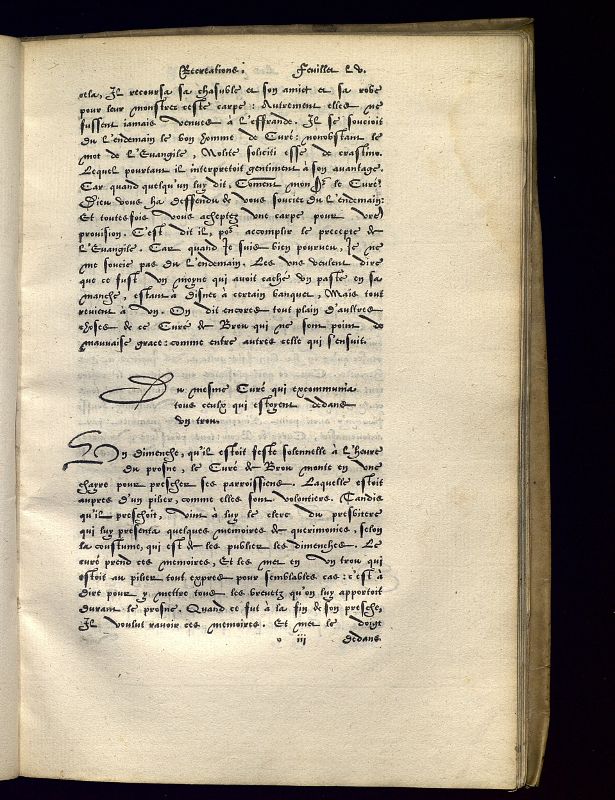 Recreations. Feuillet L v.
cela, Il recoursa sa chasuble et son amict et sa robe
pour leur monstrer ceste carpe : Autrement elles ne
fussent iamais venues à l'effrande. Il se soucioit
du l'endemain le bon homme de Curé: nonobstant le
mot de l'Evangile, Nolite soliciti esse de crastino.
Lequel pourtant il interpretoit gentiment à son avantage.
Car quand quelqu'un luy dit, Comẽnt mon Sr le Curé?
Dieu vous ha deffendu de vous soucier du l'endemain:
Et toutesfois vous acheptez une carpe pour vrẽ
provision. C'est dit il, por accomplir le precepte de
l'Evangile. Car quand Ie suis bien pourveu, Ie ne
me soucie pas du l'endemain. Les uns veulent dire
que ce fust un moyne qui avoit caché un pasté en sa
manche, estant à disner à certain banquet, Mais tout
revient à un. On dit encores tout plain d'aultres
choses de ce Curé de Brou qui ne sont point de
mauvaise grace: comme entre autres celle qui s'ensuit.
Du mesme Curé qui excommunia
tous ceulx qui estoyent dedans
un trou.
Un dimenche, qu'il estoit feste solennelle à l'heure
du prosne, le Curé de Brou monte en une
chayre pour prescher ses parroissiens. Laquelle estoit
aupres d'un pilier, comme elles sont volontiers. Tandis
qu'il preschoit, vint à luy le clerc du presbitere
qui luy presenta quelques memoires de querimonies, selon
la coustume, qui est de les publier les dimenches. Le
curé prend ces memoires, Et les met en un trou qui
estoit au pilier tout expres pour semblables cas: c'est à
dire pour y mettre tous les brevetz qu'on luy apportoit
durant le prosne. Quand ce fut à la fin de son presche,
Il voulut ravoir ces memoires. Et met le doigt
o iii dedans